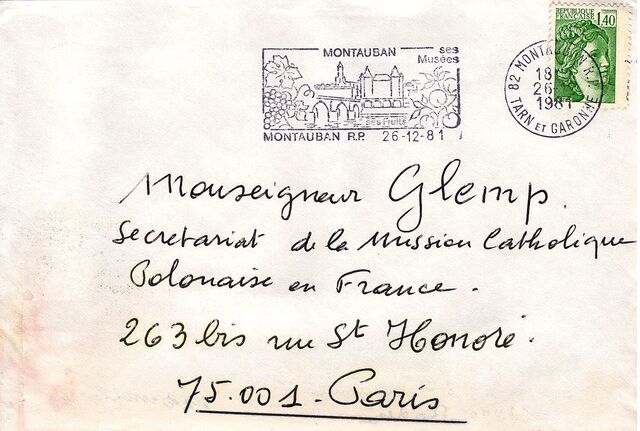 REPUBLIQUE FRANÇAISE 1,40
MONTAUBAN ses Musées
ses Fruits
MONTAUBAN R.P. 26-12-81
82 MONTAUBAN R.P.
18
26
1981
TARN ET GARONNE
Monseigneur Glemp.
Secretariat de la Mission Catholique
Polonaise en France.
263 bis rue St Honoré.
75.001. Paris